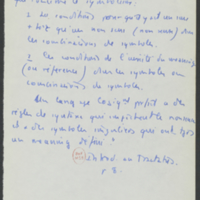 1. Les conditions pour qu'il y ait un sens
et non un non sens (non sens) dans
les combinaisons de symboles.
2. Les conditions de l'unité du meaning
(ou référence) dans les symboles ou
combinaisons de symboles.
Un langage logiqt parfait a des
règles de syntaxe qui empêchent le nonsense
et a des symboles singuliers qui ont tjrs
un meaning défini."
introd. au Tractatus
p 8.